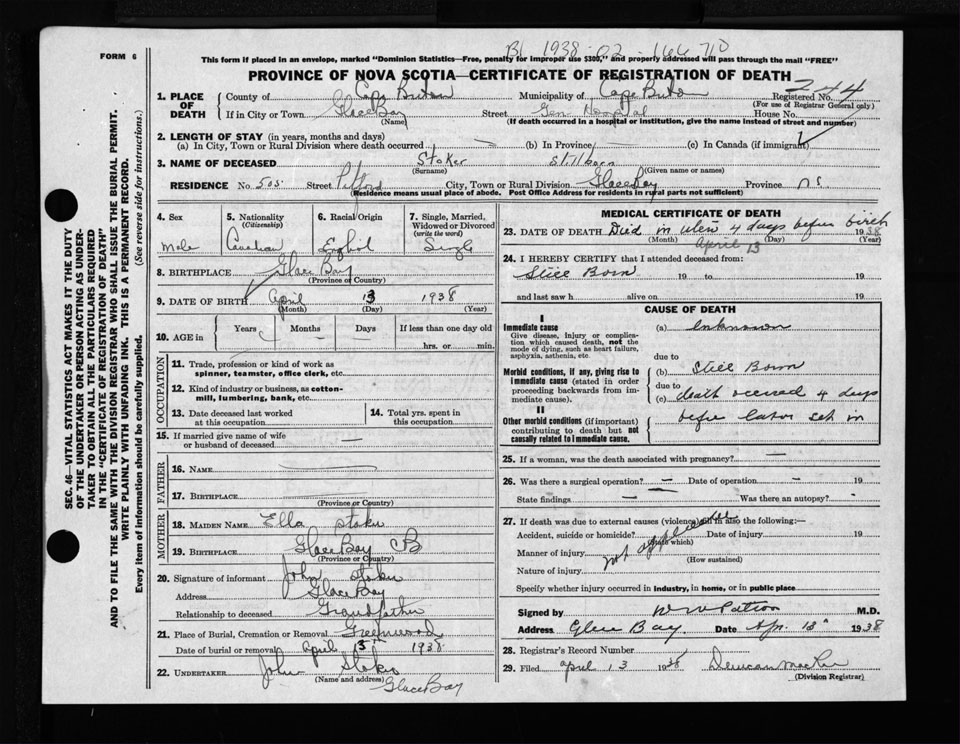 FORM 6
B1 1938-02-166710
This form if placed in an envelope, marked "Dominion Statistics—Free, penalty for improper use $300," and properly addressed will pass through the mail "FREE"
PROVINCE OF NOVA SCOTIA—CERTIFICATE OF REGISTRATION OF DEATH
1. PLACE OF DEATH
County of Cape Breton Municipality of Cape Breton Registered No. 244
(For use of Registrar General only)
If in City or Town Glace Bay Street Gen Hospital House No.
(Name) (If death occurred in a hospital or institution, give the name instead of street and number)
2. LENGTH OF STAY (in years, months and days)
(a) In City, Town or Rural Division where death occurred (b) In Province (c) In Canada (if immigrant)
3. NAME OF DECEASED Stoker Stillborn
(Surname) (Given name or names)
RESIDENCE No. 505 Street City, Town or Rural Division Glace Bay Province N S
(Residence means usual place of abode. Post Office Address for residents in rural parts not sufficient)
4. Sex
Male
5. Nationality (Citizenship)
Canadian
6. Racial Origin
English
7. Single, Married, Widowed or Divorced (write the word)
Single
8. BIRTHPLACE Glace Bay
(Province or Country)
9. DATE OF BIRTH April 13 1938
(Month) (Day) (Year)
10. AGE in Years Months Days If less than one day old
— — hrs. or min.
OCCUPATION
11. Trade, profession or kind of work as spinner, teamster, office clerk, etc.
12. Kind of industry or business, as cotton-mill, lumbering, bank, etc.
13. Date deceased last worked at this occupation
14. Total yrs. spent in this occupation
15. If married give name of wife or husband of deceased —
FATHER
16. NAME —
17. BIRTHPLACE
(Province or Country)
MOTHER
18. MAIDEN NAME Ella Stoker
19. BIRTHPLACE Glace Bay CB
(Province or Country)
20. Signature of informant John Stoker
Address Glace Bay
Relationship to deceased Grandfather
21. Place of Burial, Cremation or Removal Greenwood
Date of burial or removal April 1938
22. UNDERTAKER John Stoker
(Name and address)
Glace Bay
MEDICAL CERTIFICATE OF DEATH
23. DATE OF DEATH Died in utero 4 days before birth 1938
(Month) (Day) (Year)
April 13
24. I HEREBY CERTIFY that I attended deceased from:
Still Born 19 to 19
and last saw h alive on 19
CAUSE OF DEATH
I
Immediate cause
Give disease, injury or complication which caused death, not the mode of dying, such as heart failure, asphyxia, asthenia, etc.
(a) Unknown
due to
Morbid conditions, if any, giving rise to immediate cause (stated in order proceeding backwards from immediate cause).
(b) Still Born
due to
(c) death occured 4 days
before labor set in
II
Other morbid conditions (if important) contributing to death but not causally related to immediate cause.
25. If a woman, was the death associated with pregnancy? —
26. Was there a surgical operation? — Date of operation — 19
State findings — Was there an autopsy? -
27. If death was due to external causes (violence) fill in also the following:—
Accident, suicide or homicide? Date of injury 19
(State which)
Manner of injury not applicable
(How sustained)
Nature of injury
Specify whether injury occurred in industry, in home, or in public place
Signed by W W Patton M.D.
Address Glace Bay. Date Apr. 13 1938
28. Registrar's Record Number
29. Filed April 13 1938 Duncan
(Division Registrar)
SEC. 46—VITAL STATISTICS ACT MAKES IT THE DUTY
OF THE UNDERTAKER OR PERSON ACTING AS UNDER-
TAKER TO OBTAIN ALL THE PARTICULARS REQUIRED
IN THE "CERTIFICATE OF REGISTRATION OF DEATH"
AND TO FILE THE SAME WITH THE DIVISION REGISTRAR WHO SHALL ISSUE THE BURIAL PERMIT.
WRITE PLAINLY WITH UNFADING INK. THIS IS A PERMANENT RECORD.
Every item of information should be carefully supplied. (See reverse side for instructions.)